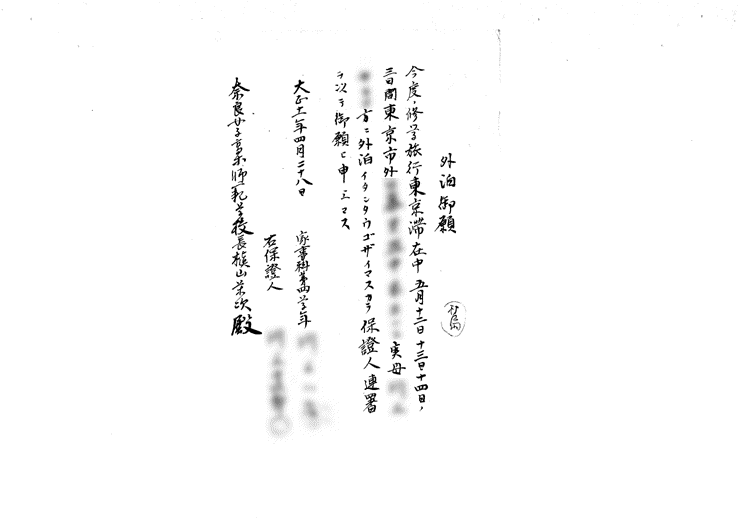 外泊御願
今度、修学旅行東京滞在中五月十二日十三日十四日、
三日間東京市外 実母
方ニ外泊イタシタウゴザイマスカラ保證人連署
ヲ以テ御願ヒ申シマス
大正十一年四月二十八日
家事科第四学年
右保證人
奈良女子高等師範学校長槇山栄次殿